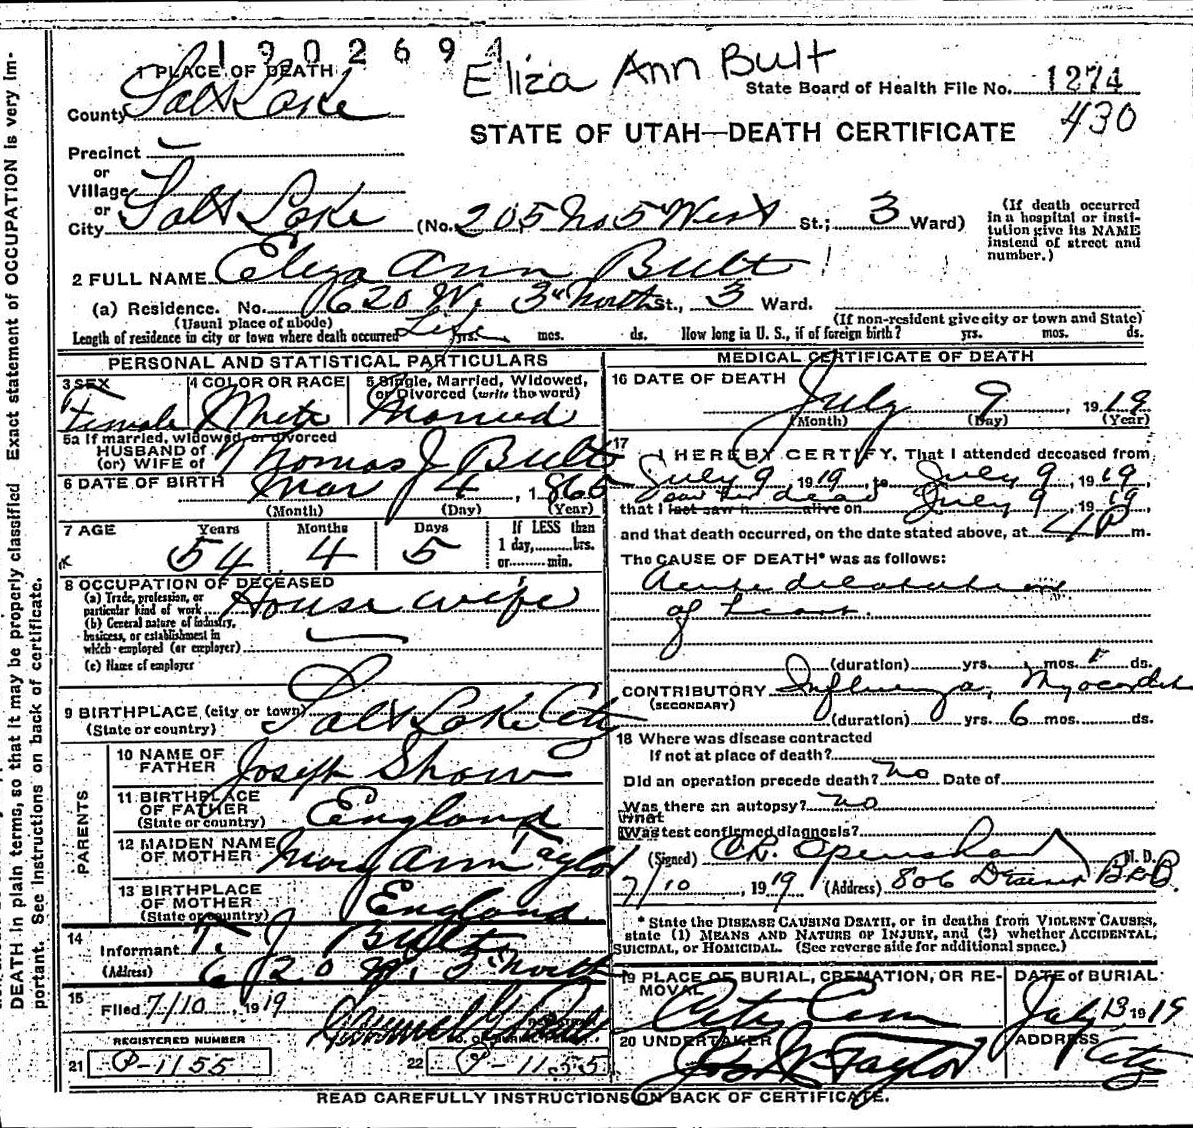 1902694
Eliza Ann Bult
State Board of Health File No. 1274
430
STATE OF UTAH—DEATH CERTIFICATE
1 PLACE OF DEATH
County Salt Lake
Precinct
or
Village
or
City Salt Lake (No. 205 No 5 West St.; 3 Ward)
(If death occurred in a hospital or insti-
tution give its NAME
instead of street and
number.)
2 FULL NAME Eliza Ann Bult
(a) Residence. No. 620 W. 3" North St., 3 Ward.
(Usual place of abode) (If non-resident give city or town and State)
Length of residence in city or town where death occurred Life yrs. mos. ds. How long in U. S., if of foreign birth? yrs. mos. ds.
PERSONAL AND STATISTICAL PARTICULARS
3 SEX Female
4 COLOR OR RACE White
5 Single, Married, Widowed, or Divorced (write the word) Married
5a If married, widowed or divorced
HUSBAND of
(or) WIFE of Thomas J Bult
6 DATE OF BIRTH Mar 4, 1865
(Month) (Day) (Year)
7 AGE Years Months Days If LESS than
54 4 5 1 day, hrs.
or min.
8 OCCUPATION OF DECEASED
(a) Trade, profession, or
particular kind of work House wife
(b) General nature of industry,
business, or establishment in
which employed (or employer)
(c) Name of employer
9 BIRTHPLACE (city or town) Salt Lake City
(State or country)
PARENTS
10 NAME OF FATHER Joseph Shaw
11 BIRTHPLACE OF FATHER England
(State or country)
12 MAIDEN NAME OF MOTHER Mary Ann Taylor
13 BIRTHPLACE OF MOTHER England
(State or country)
14 Informant T. J Bult
(Address) 620 W. 3" North
15 Filed 7/10, 1919
REGISTERED NUMBER
21 P-1155
22 P-1155
MEDICAL CERTIFICATE OF DEATH
16 DATE OF DEATH July 9, 1919
(Month) (Day) (Year)
17 I HEREBY CERTIFY, That I attended deceased from
July 9 1919, to July 9, 1919,
that I last saw h alive on saw her dead July 9, 1919,
and that death occurred, on the date stated above, at 4 P m.
The CAUSE OF DEATH* was as follows:
Acute dilatation
of heart.
(duration) yrs. mos. ds.
CONTRIBUTORY Influenza, Myocarditis
(SECONDARY)
(duration) yrs. 6 mos. ds.
18 Where was disease contracted
If not at place of death?
Did an operation precede death? no Date of
Was there an autopsy? no
What
Was test confirmed diagnosis?
(Signed) Openshaw, M. D.
7/10, 1919 (Address) 806 Deseret
* State the DISEASE CAUSING DEATH, or in deaths from VIOLENT CAUSES,
state (1) MEANS AND NATURE OF INJURY, and (2) whether ACCIDENTAL,
SUICIDAL, or HOMICIDAL. (See reverse side for additional space.)
19 PLACE OF BURIAL, CREMATION, OR RE-
MOVAL City Cem
DATE of BURIAL
July 13 1919
20 UNDERTAKER Jos W Taylor
ADDRESS City
READ CAREFULLY INSTRUCTIONS ON BACK OF CERTIFICATE.
DEATH in plain terms, so that it may be properly classified Exact statement of OCCUPATION is very im-
portant. See instructions on back of certificate.